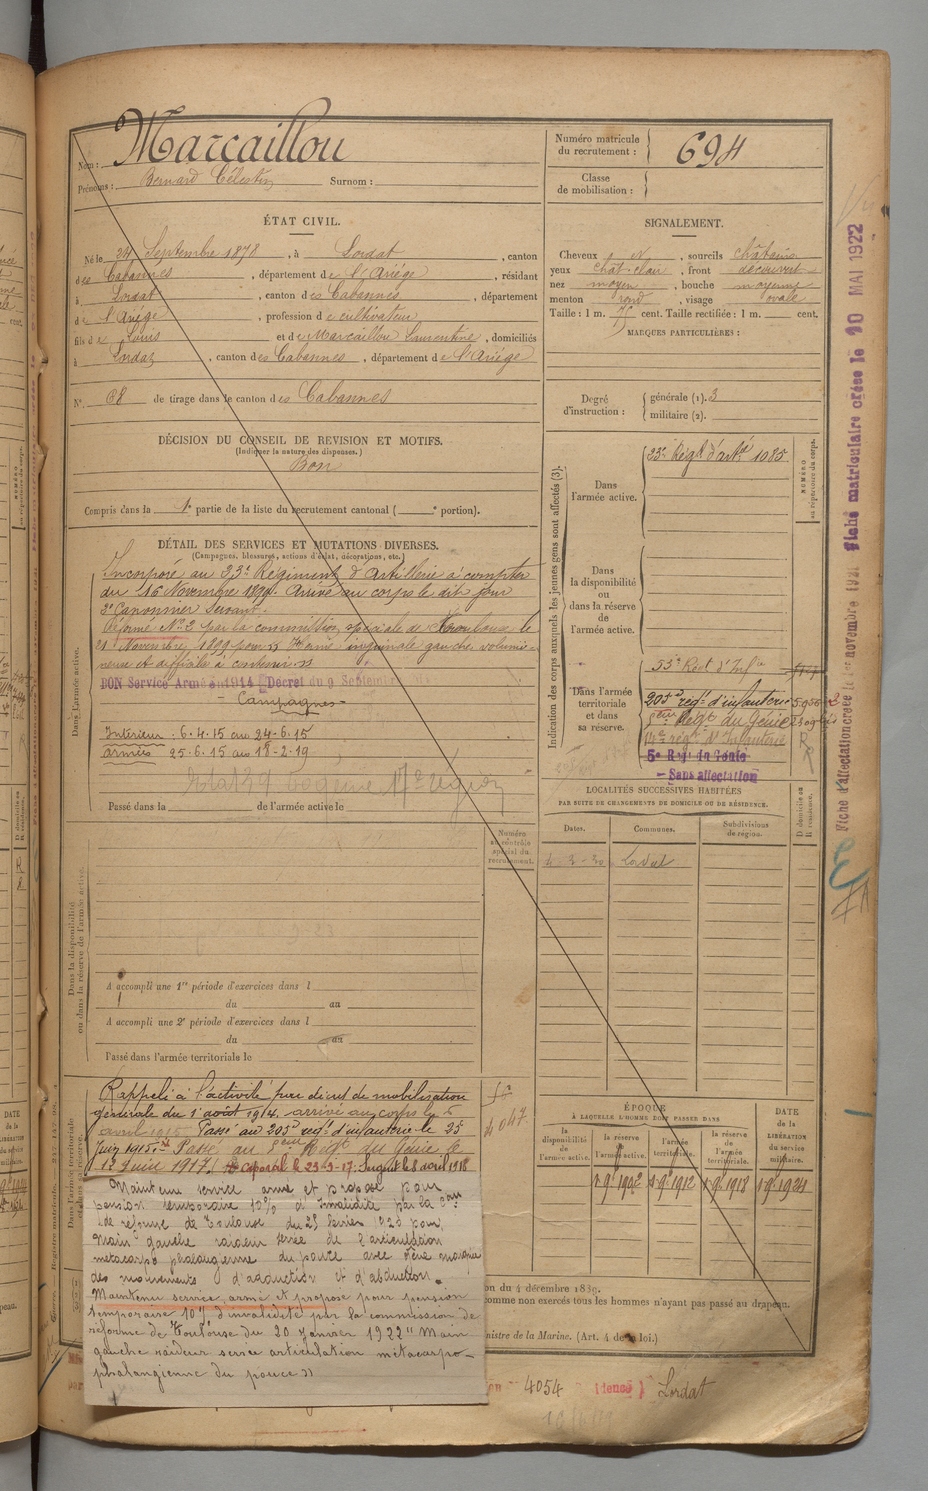 Nom : Marcaillou
Prénoms : Bernard Célestin Surnom :
Numéro matricule du recrutement : 694
Classe de mobilisation :
ÉTAT CIVIL.
Né le 24 Septembre 1878, à Lordat, canton
des Cabannes, département de l'Ariège, résidant
à Lordat, canton des Cabannes, département
de l'Ariège, profession de cultivateur
fils de Louis et de Marcaillou Laurentine, domiciliés
à Lordat, canton des Cabannes, département de l'Ariège
N° 38 de tirage dans le canton des Cabannes
SIGNALEMENT.
Cheveux N, sourcils châtains
yeux chat. clair, front découvert
nez moyen, bouche moyenne
menton rond, visage ovale
Taille : 1 m. 75 cent. Taille rectifiée : 1 m. cent.
MARQUES PARTICULIÈRES :
Degré d'instruction : générale (1). 3
militaire (2).
DÉCISION DU CONSEIL DE REVISION ET MOTIFS.
(Indiquer la nature des dispenses.)
Bon
Compris dans la 1e partie de la liste du recrutement cantonal ( e portion).
DÉTAIL DES SERVICES ET MUTATIONS DIVERSES.
(Campagnes, blessures, actions d'éclat, décorations, etc.)
Incorporé au 23e Régiment d'Artillerie à compter
du 16 Novembre 1899. Arrivé au corps le dit jour
2e Canonnier Servant.
Réformé N° 2 par la commission spéciale de Toulouse le
21 Novembre 1899 pour " Hernie inguinale gauche volumi-
neuse et difficile à contenir "
BON Service Armé en 1914 Décret du 9 Septembre
Campagnes
Intérieur : 6.4.15 au 24-6.15
Armées 25-6.15 au 18-2-19
Passé dans la de l'armée active le
Dans l'armée active.
Indication des corps auxquels les jeunes gens sont affectés (3).
NUMÉRO au répertoire du corps.
Dans l'armée active.
23e Régt d'artie 1085
Dans la disponibilité ou dans la réserve de l'armée active.
Dans l'armée territoriale et dans sa réserve.
55e Rect d'Infie
205e régt d'infanterie 5956
8ème Régt du Génie
14e régt d'Infanterie
5e Régt du Génie
- Sans affectation
LOCALITÉS SUCCESSIVES HABITÉES
PAR SUITE DE CHANGEMENTS DE DOMICILE OU DE RÉSIDENCE.
Dates. Communes. Subdivisions de région. D domicile ou R résidence.
4-3-30 Lordat
Numéro au contrôle spécial du recrutement.
Dans la disponibilité ou dans la réserve de l'armée active.
A accompli une 1re période d'exercices dans l
du au
A accompli une 2e période d'exercices dans l
du au
Passé dans l'armée territoriale le
Rappelé à l'activité par décret de mobilisation
générale du 1er août 1914, arrivé au corps le 6
avril 1915. Passé au 205e régt d'infanterie le 25
Juin 1915. Passé au 8ème Régt du Génie le
12 Juin 1917. Caporal le 23-9-17. Sergent le 8 avril 1918
Maintenu service armé et proposé pour
pension temporaire 10% d'invalidité par la com
de réforme de Toulouse du 25 février 1920 pour,
Main gauche raideur serrée de l'articulation
métacarpo phalangienne du pouce avec gêne marquée
des mouvements d'adduction et d'abduction.
Maintenu service armé et proposé pour pension
temporaire 10% d'invalidité par la commission de
réforme de Toulouse du 20 janvier 1922 " Main
gauche raideur serrée articulation métacarpo-
phalangienne du pouce "
ÉPOQUE
À LAQUELLE L'HOMME DOIT PASSER DANS
la disponibilité de l'armée active. la réserve de l'armée active. l'armée territoriale. la réserve de l'armée territoriale. DATE de la LIBÉRATION du service militaire.
1 9bre 1902 1 9bre 1912 1 9bre 1918 1 9bre 1924
on du 4 décembre 1889.
comme non exercés tous les hommes n'ayant pas passé au drapeau.
inistre de la Marine. (Art. 4 de la loi.)
4054 Lordat
Fiche d'affectation créée le 1er novembre 1921 Fiche matriculaire créée le 10 MAI 1922